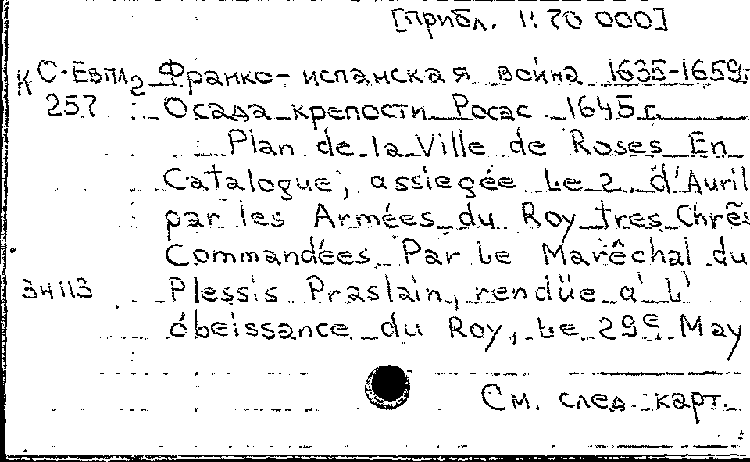 [прибл. 1:70 000]
К С-Евпл2 Франко-испанская война 1635-1659г
257 Осада крепости Росас 1645г.
Plan de la Ville de Roses En
Catalogue, assiegée Le 2. d'Auril
par les Armées du Roy tres Chrês
Commandées Par Le Marêchal du
34113 Plessis Praslain, rendüe a' L'
óbeissance du Roy, Le 29e May
См. след. карт.